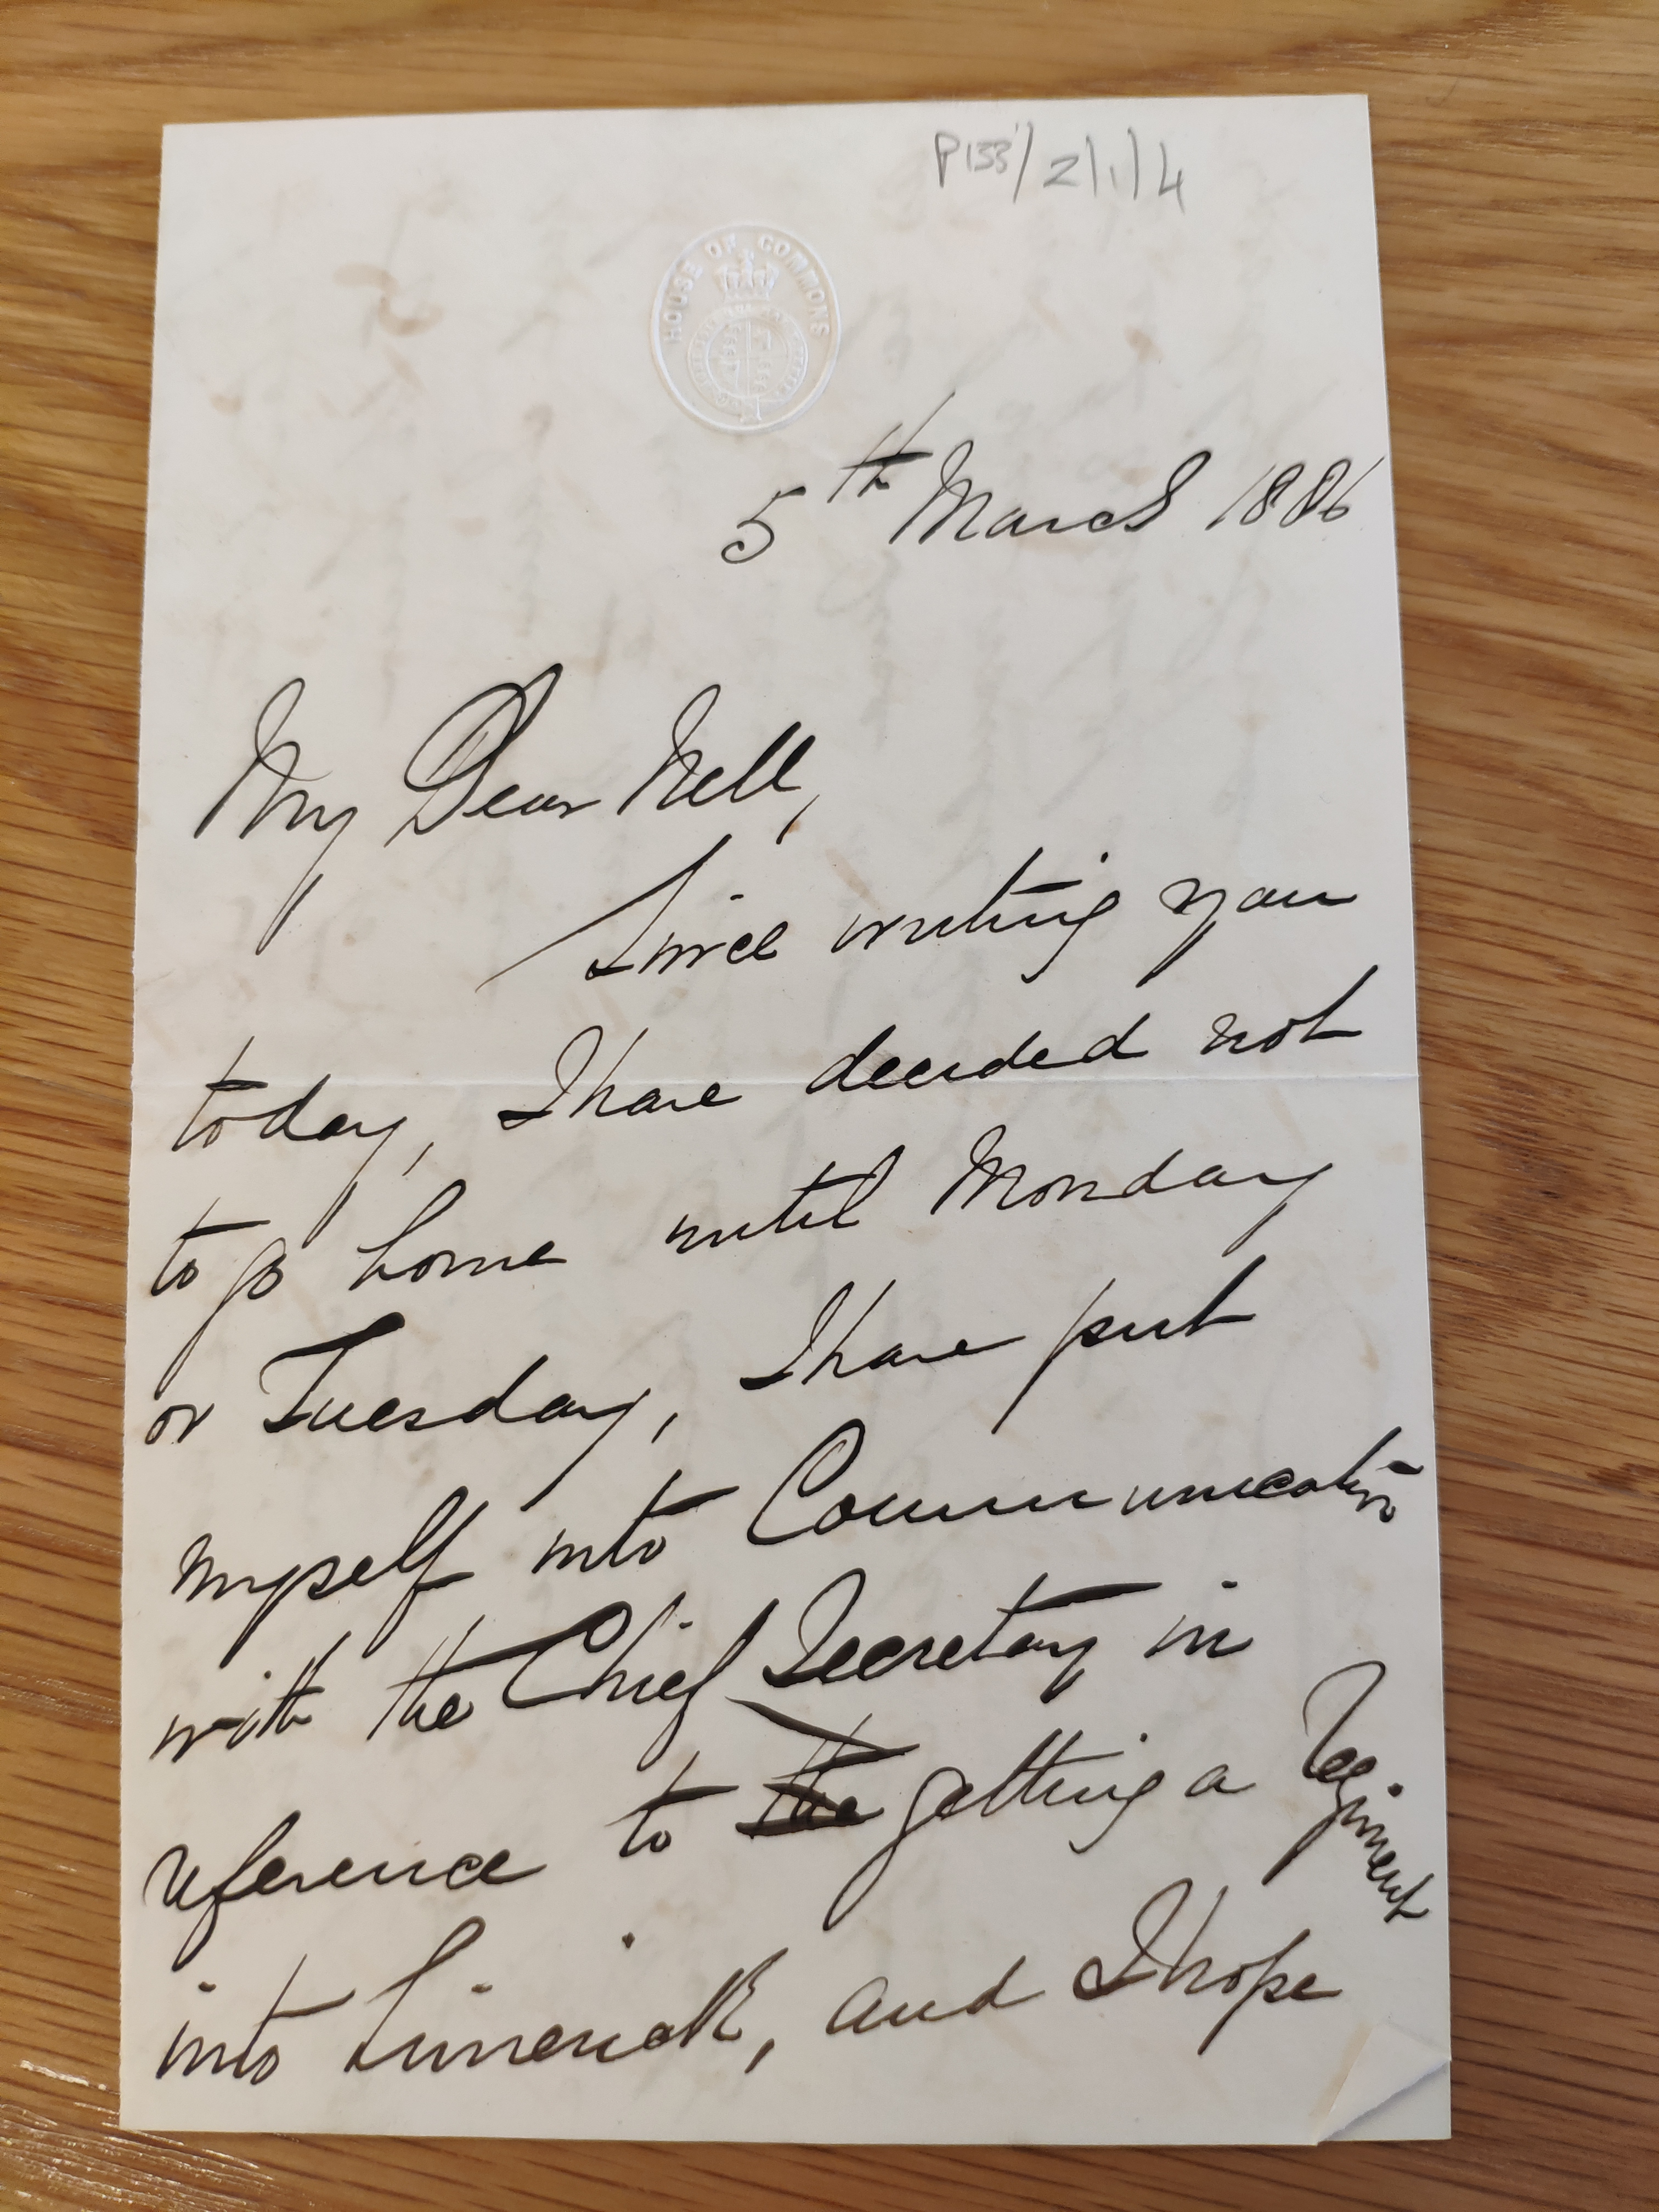 P133/2/1/4
HOUSE OF COMMONS
5th March 1886
My Dear Nell,
Since writing you
today, I have decided not
to go home until Monday
or Tuesday, I have put
myself into Communication
with the Chief Secretary in
reference to the getting a Regiment
into Limerick, and I hope